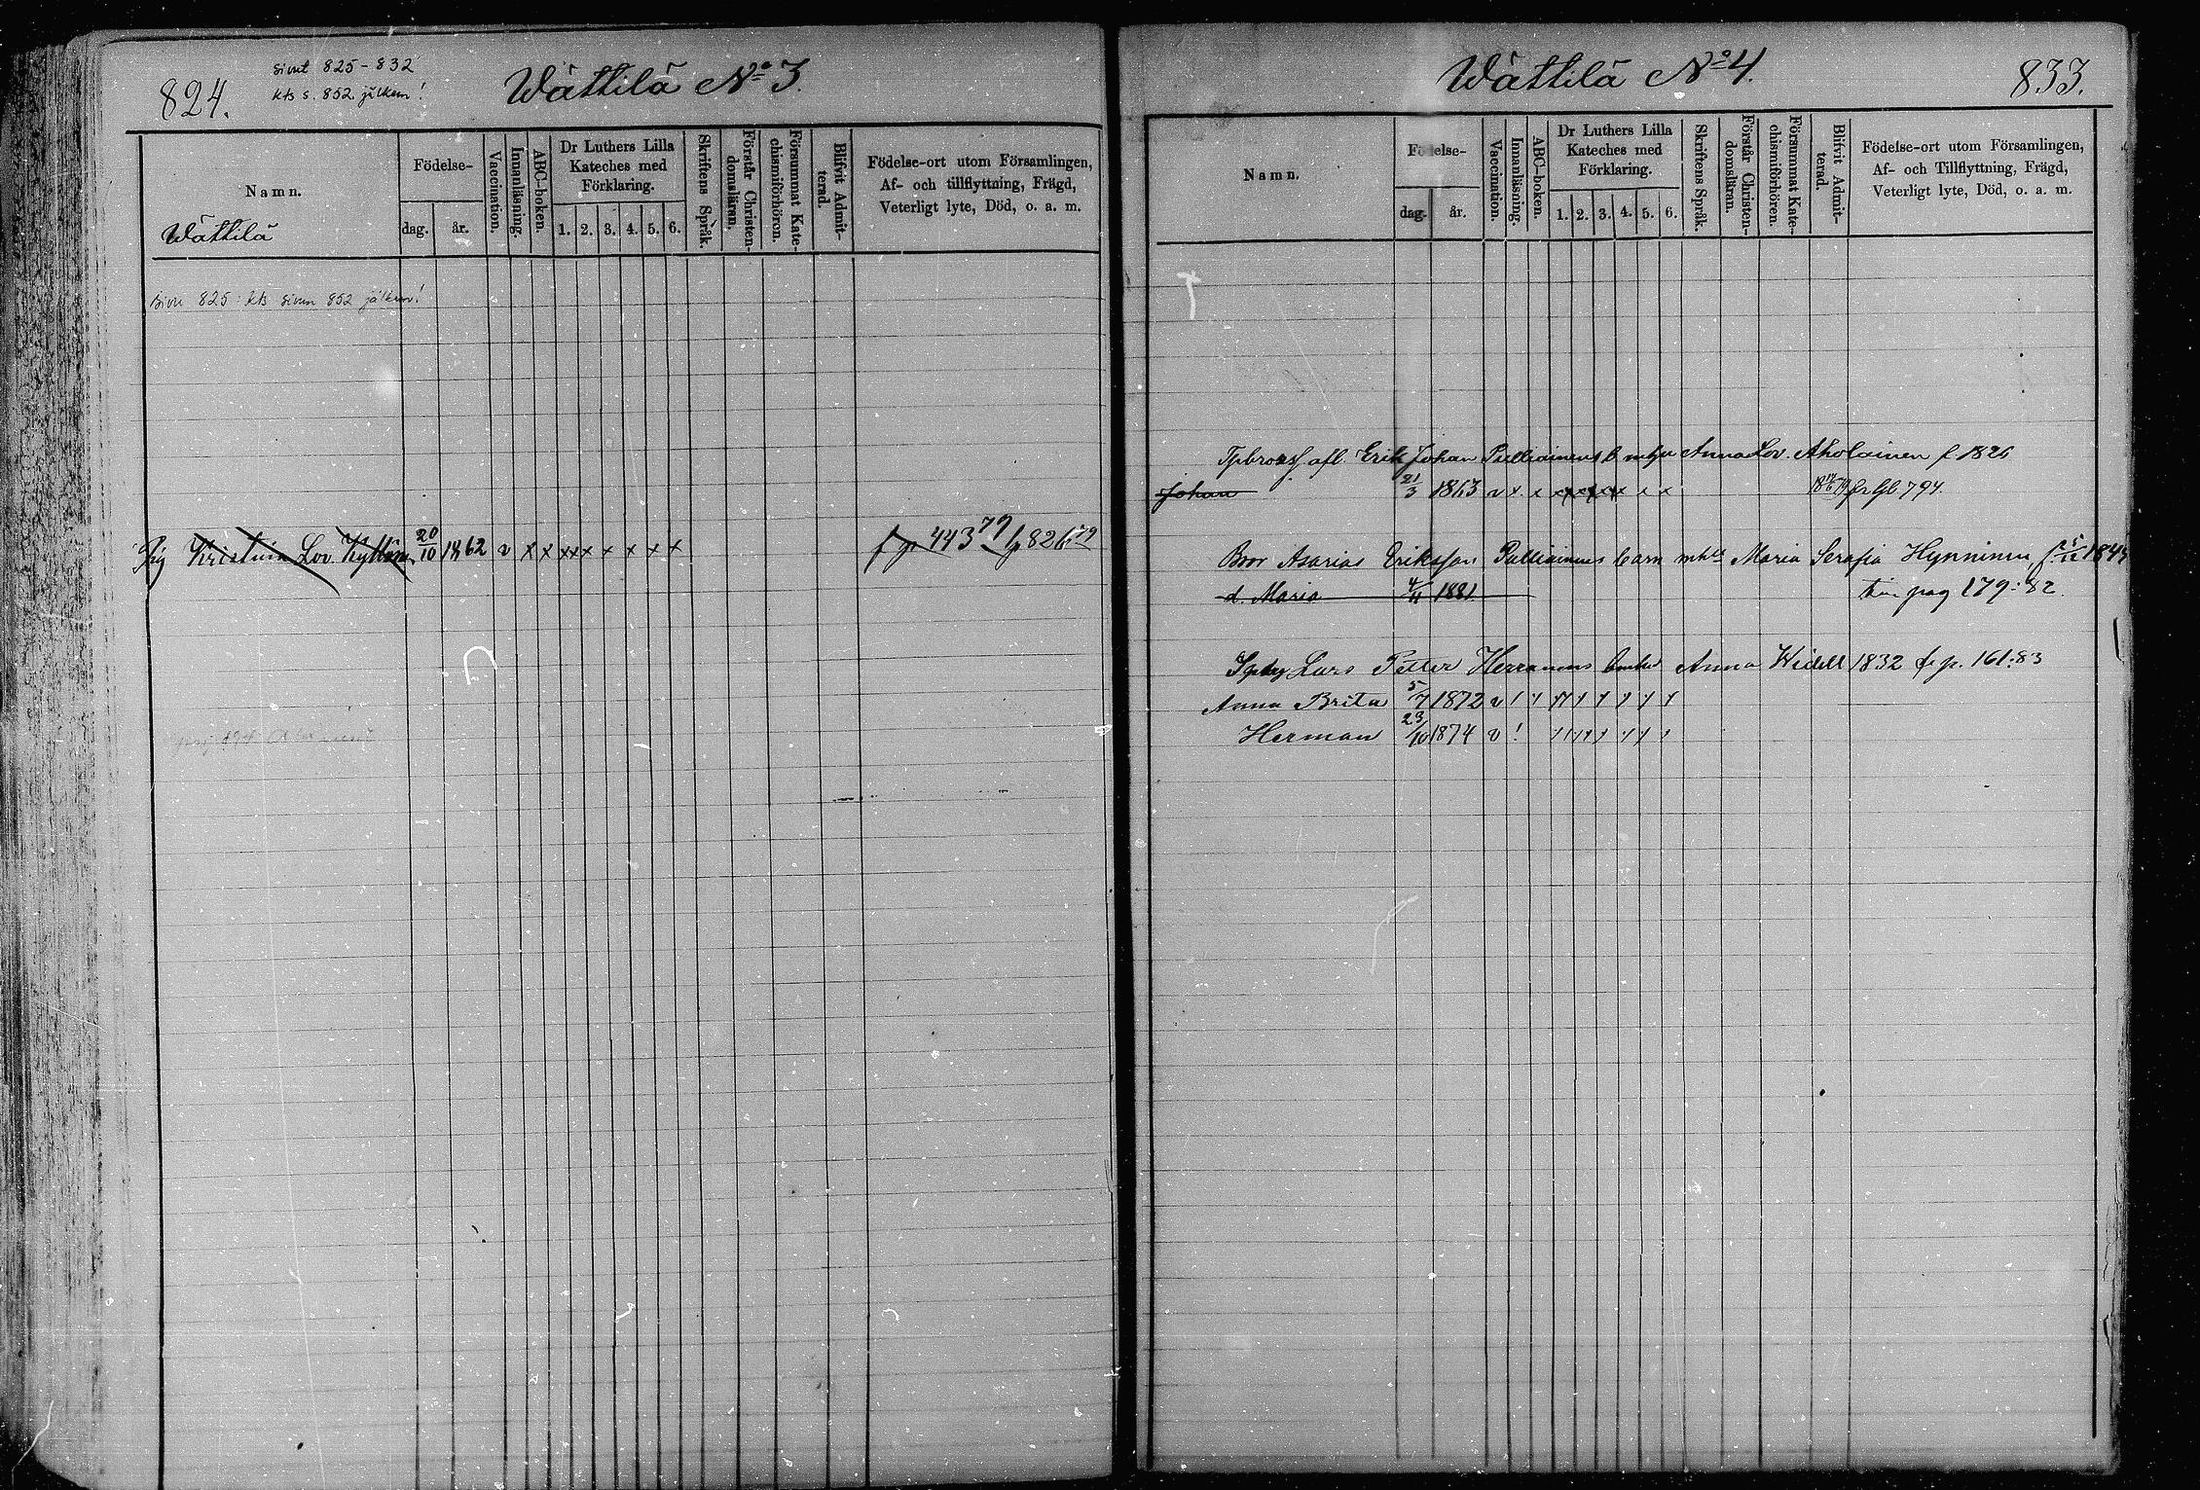 824.
sivut 825-832
kts s. 852 jälkeen!
Wättilä No 3.
Namn.
Födelse-
dag.
år.
Vaccination.
Innanläsning.
ABC-boken.
Dr Luthers Lilla
Kateches med
Förklaring.
1. 2. 3. 4. 5. 6.
Skriftens Språk.
Förstår Christen-
domsläran.
Försummat Kate-
chismiförhören.
Blifvit Admit-
terad.
Födelse-ort utom Församlingen,
Af- och tillflyttning, Frägd,
Veterligt lyte, Död, o. a. m.
Wättilä
Sivu 825 kts sivun 852 jälkeen!
Pig Kristina Lov. 20/10 1862 v x x x x x x x x x f p 443 79
Wättilä No 4.
833.
Namn.
Födelse-
dag.
år.
Vaccination.
Innanläsning.
ABC-boken.
Dr Luthers Lilla
Kateches med
Förklaring.
1. 2. 3. 4. 5. 6.
Skriftens Språk.
Förstår Christen-
domsläran.
Försummat Kate-
chismiförhören.
Blifvit Admit-
terad.
Födelse-ort utom Församlingen,
Af- och Tillflyttning, Frägd,
Veterligt lyte, Död, o. a. m.
afl. Erik Johan Anna Lov. Aholainen f 1826
Johan 21/3 1863 v x x 794.
Asarias Eriksson barn Maria Serafia Hynninen
d. Maria 4/11 1881. pag 179:82.
Lars Petter Anna Widell 1832 fr p. 161:83
Anna Brita 5/7 1872 v
Herman 23/10 1874 v !